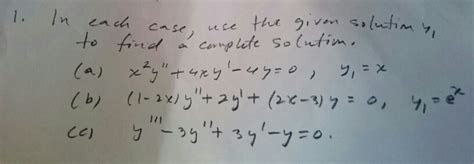 1. In each case, use the given solution y₁
to find a complete solution.
(a) x²y'' + 4xy' - 4y = 0 , y₁ = x
(b) (1-2x)y'' + 2y' + (2x-3)y = 0, y₁ = eˣ
(c) y''' - 3y'' + 3y' - y = 0.